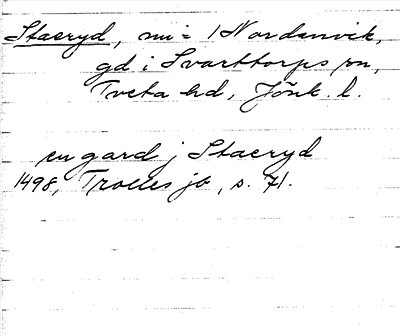 Staeryd, nu = Nordanvik,
gd i Svarttorps sn,
Tveta hd, Jönk. l.
en gard j Staeryd
1498, Trolles jb, s. 71.